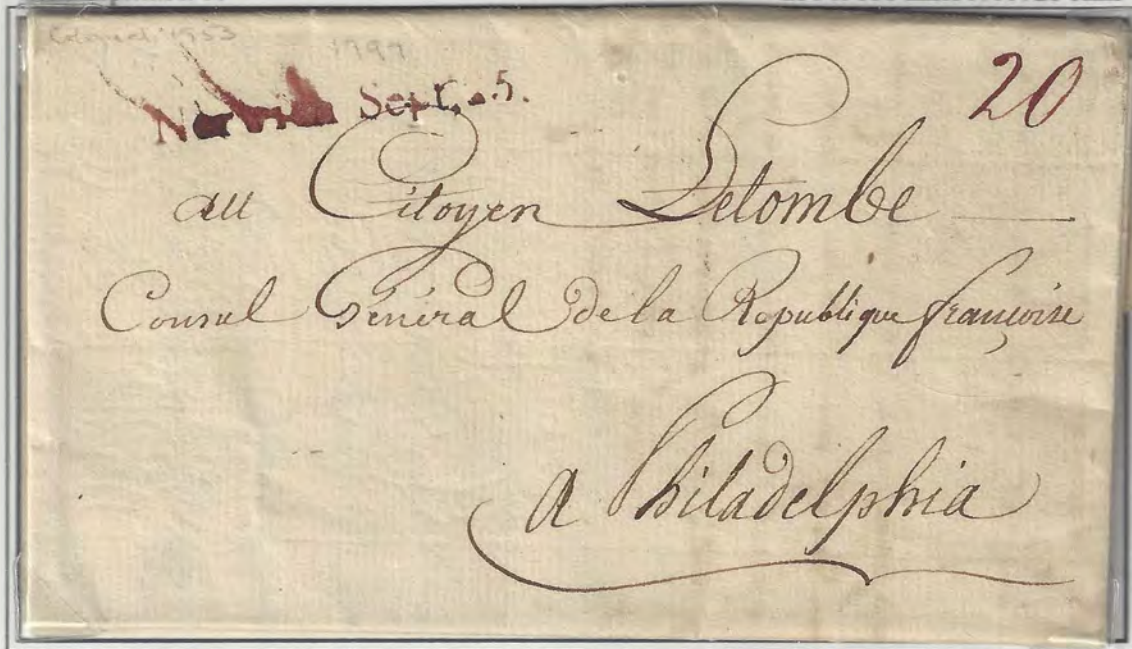 1797
Sept. 5.
20
au Citoyen Letombe
Consul Général de la Republique françoise
a Philadelphia